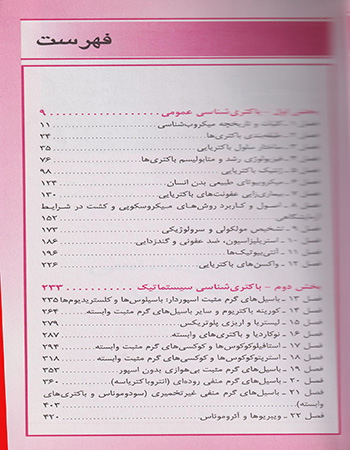 فهرست
بخش اول - باکتری‌شناسی عمومی ۹
فصل ۱ - کلیات و تاریخچه میکروب‌شناسی ۱۱
فصل ۲ - طبقه‌بندی باکتری‌ها ۲۴
فصل ۳ - ساختار سلول باکتریایی ۳۵
فصل ۴ - فیزیولوژی رشد و متابولیسم باکتری‌ها ۷۶
فصل ۵ - ژنتیک باکتریایی ۹۸
فصل ۶ - میکروبیوتای طبیعی بدن انسان ۱۲۳
فصل ۷ - بیماری‌زایی عفونت‌های باکتریایی ۱۳۰
فصل ۸ - اصول و کاربرد روش‌های میکروسکوپی و کشت در شرایط
آزمایشگاهی ۱۵۲
فصل ۹ - تشخیص مولکولی و سرولوژیکی ۱۷۳
فصل ۱۰ - استریلیزاسیون، ضد عفونی و گندزدایی ۱۸۶
فصل ۱۱ - آنتی‌بیوتیک‌ها ۱۹۶
فصل ۱۲ - واکسن‌های باکتریایی ۲۲۶
بخش دوم - باکتری‌شناسی سیستماتیک ۲۳۳
فصل ۱۳ - باسیل‌های گرم مثبت اسپوردار: باسیلوس‌ها و کلستریدیوم‌ها ۲۳۵
فصل ۱۴ - کورینه باکتریوم و سایر باسیل‌های گرم مثبت وابسته ۲۶۴
فصل ۱۵ - لیستریا و اریزی پلوتریکس ۲۷۹
فصل ۱۶ - نوکاردیا و باکتری‌های وابسته ۲۸۷
فصل ۱۷ - استافیلوکوکوس‌ها و کوکسی‌های گرم مثبت وابسته ۲۹۴
فصل ۱۸ - استرپتوکوکوس‌ها و کوکسی‌های گرم مثبت وابسته ۳۱۸
فصل ۱۹ - باسیل‌های گرم مثبت بی‌هوازی بدون اسپور ۳۵۳
فصل ۲۰ - باسیل‌های گرم منفی روده‌ای (انتروباکتریاسه) ۳۶۰
فصل ۲۱ - باسیل‌های گرم منفی غیرتخمیری (سودوموناس و باکتری‌های
وابسته) ۴۰۳
فصل ۲۲ - ویبریوها و آئروموناس ۴۲۰